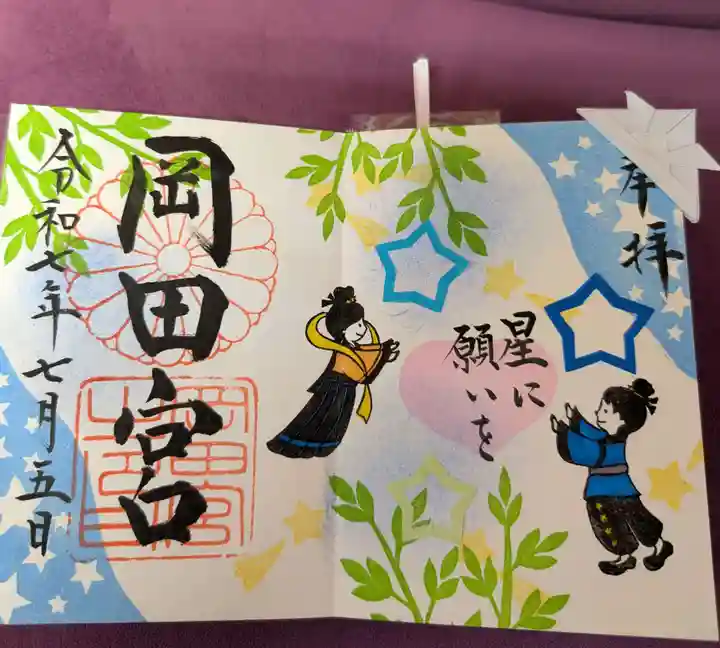 奉拝
星に
願いを
岡田宮
令和七年七月五日